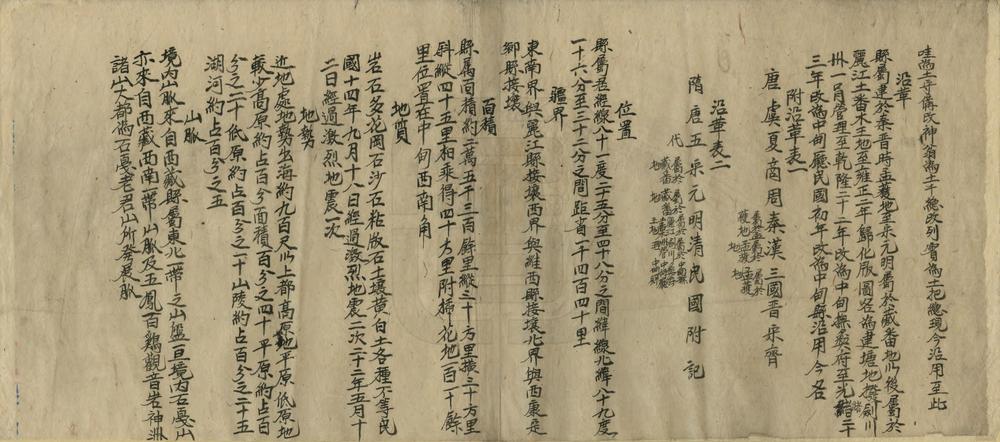 哇為土守備改神翁為土千總改列賓為土把總現今沿用至此
沿革
縣屬建於秦晉時孟獲地至宋元明屬於藏番地以後屬於
麗江土番木王地至雍正二年歸化版圖名為建塘地撥劍川
州一員管理至乾隆二十二年改為中甸撫夷府至光緒三十
三年改為中甸廳民國初年改為中甸縣沿用今名
附沿革表一
唐虞夏商周秦漢三國晉宋齊
屬孟獲地
屬於孟獲地
沿革表二
隋唐五代宋元明清民國附記
位置
縣屬居經線八十一度二十五分至四十八分之間緯線北緯八十九度
一十六分至三十二分之間距省一千四百四十里
疆界
東南界與麗江縣接壤西界與維西縣接壤北界與西康定
鄉縣接壤
面積
縣屬面積約二萬五千三百餘里縱三十方里橫三十方里
斜縱四十五里相乘得四十方里附插花地百二十餘
里位置在中甸西南角
地質
岩石多花岡石沙石粘版石土壤黃白土各種不等民
國十四年九月十八日經過激烈地震二次二十二年五月十
二日經過激烈地震一次
地勢
近地處地勢出海約九百尺以上都高原地平原低原地
較少高原約占百分面積百分之四十平原約占百
分之二十低原約占百分之二十山陵約占百分之二十五
湖河約占百分之五
山脈
境內山脈來自西藏縣屬東北一帶之山盤亘境內石戞山
亦來自西藏西南一帶山脈及五鳳百鷄觀音岩神洲
諸山大都為石戞老君山所發展脈